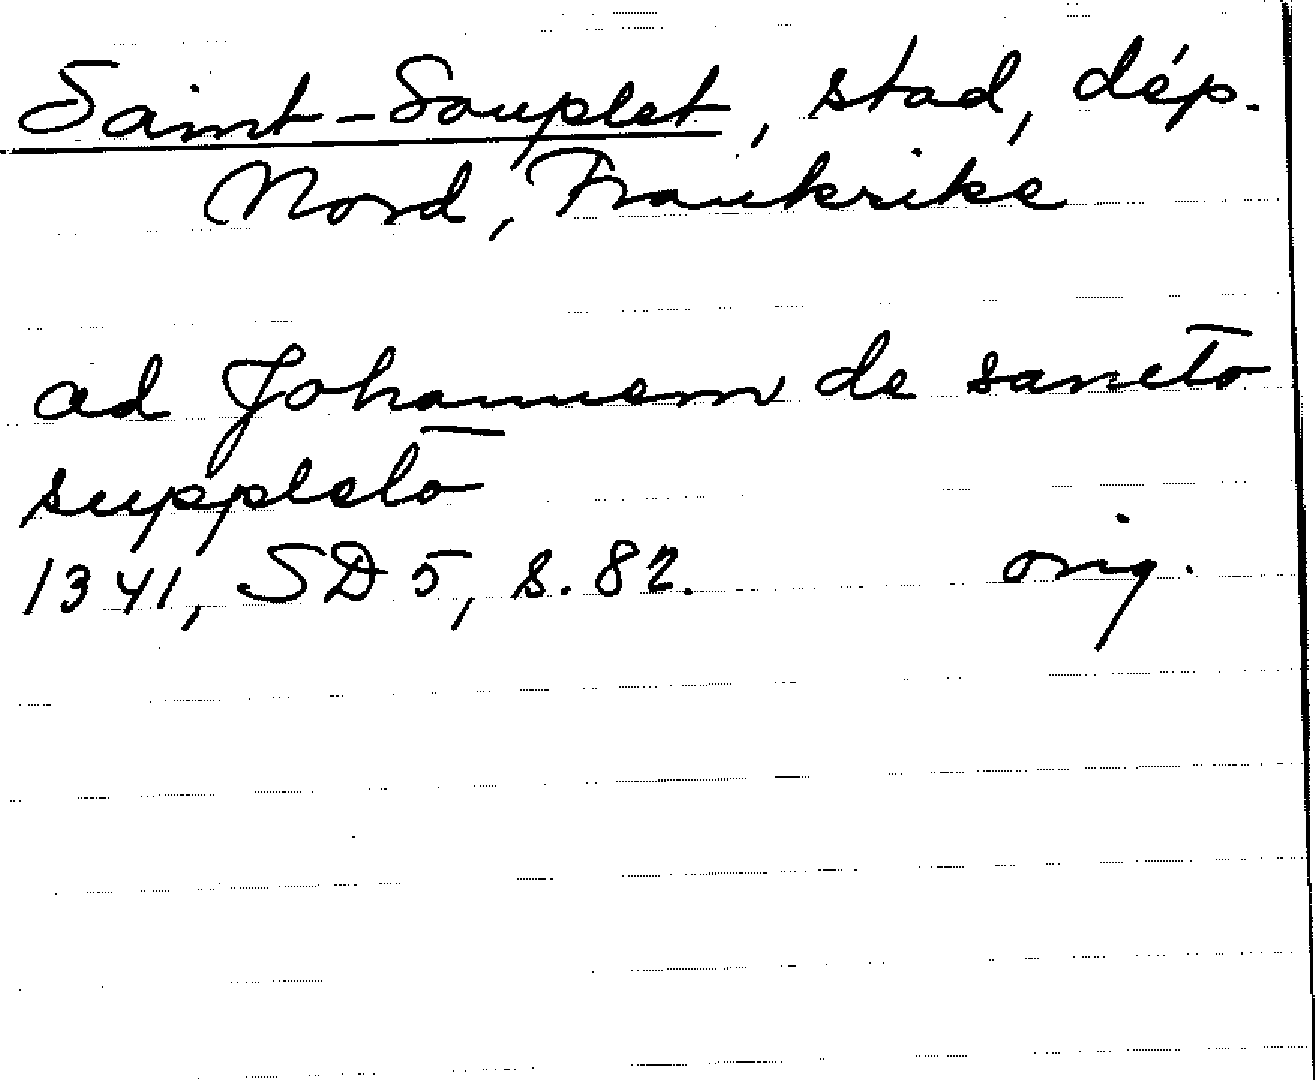 Saint-Souplet, stad, dép.
Nord, Frankrike
ad Johannem de sancto
suppleto
1341, SD 5, s. 82. orig.